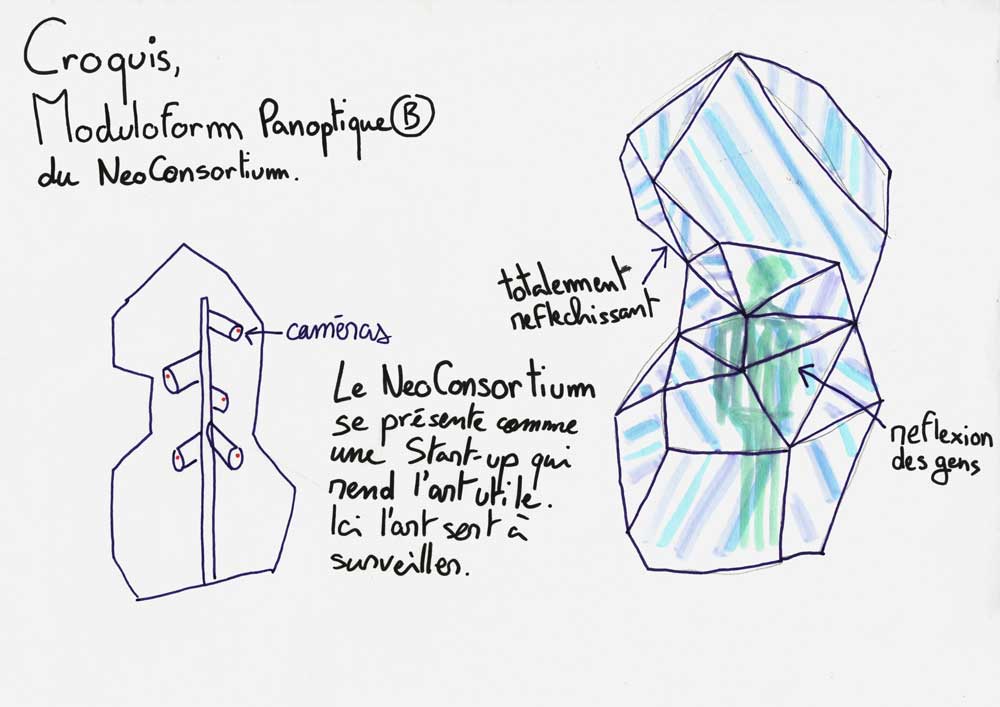 Croquis,
Moduloform Panoptique Ⓑ
du NeoConsortium.
totalement
reflechissant
caméras
Le NeoConsortium
se présente comme
une Start-up qui
rend l'art utile.
Ici l'art sert à
surveiller.
reflexion
des gens